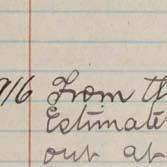 916 From th
Estimate
out at